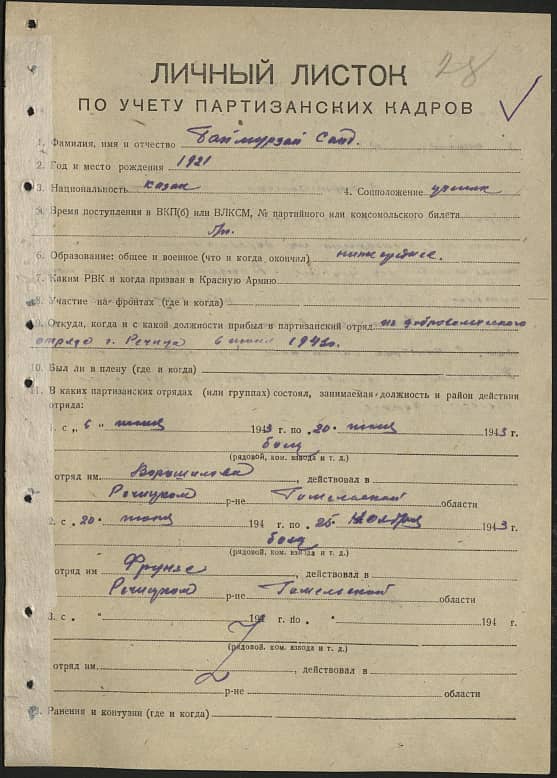 28
ЛИЧНЫЙ ЛИСТОК
ПО УЧЕТУ ПАРТИЗАНСКИХ КАДРОВ
1. Фамилия, имя и отчество Баймурзай Саид.
2. Год и место рождения 1921
3. Национальность казак 4. Соцположение ученик
5. Время поступления в ВКП(б) или ВЛКСМ, № партийного или комсомольского билета
б/п.
6. Образование: общее и военное (что и когда окончил) ниже среднее.
7. Каким РВК и когда призван в Красную Армию
8. Участие на фронтах (где и когда)
9. Откуда, когда и с какой должности прибыл в партизанский отряд из добровольческого
отряда г. Речица 6 июня 1943г.
10. Был ли в плену (где и когда)
11. В каких партизанских отрядах (или группах) состоял, занимаемая должность и район действия
отряда:
1. с „ 6 " июня 1943 г. по „20" июня 1943 г.
боец
(рядовой, ком. взвода и т. д.)
отряд им. Ворошилова, действовал в
Речицком р-не Гомельской области
2. с „20" июня 194 г. по „25" Ноября 1943 г.
боец
(рядовой, ком. взвода и т. д.)
отряд им Фрунзе, действовал в
Речицком р-не Гомельской области
3. с „ " 194 г. по „ " 194 г.
(рядовой, ком. взвода и т. д.)
отряд им. , действовал в
р-не области
Ранения и контузии (где и когда)